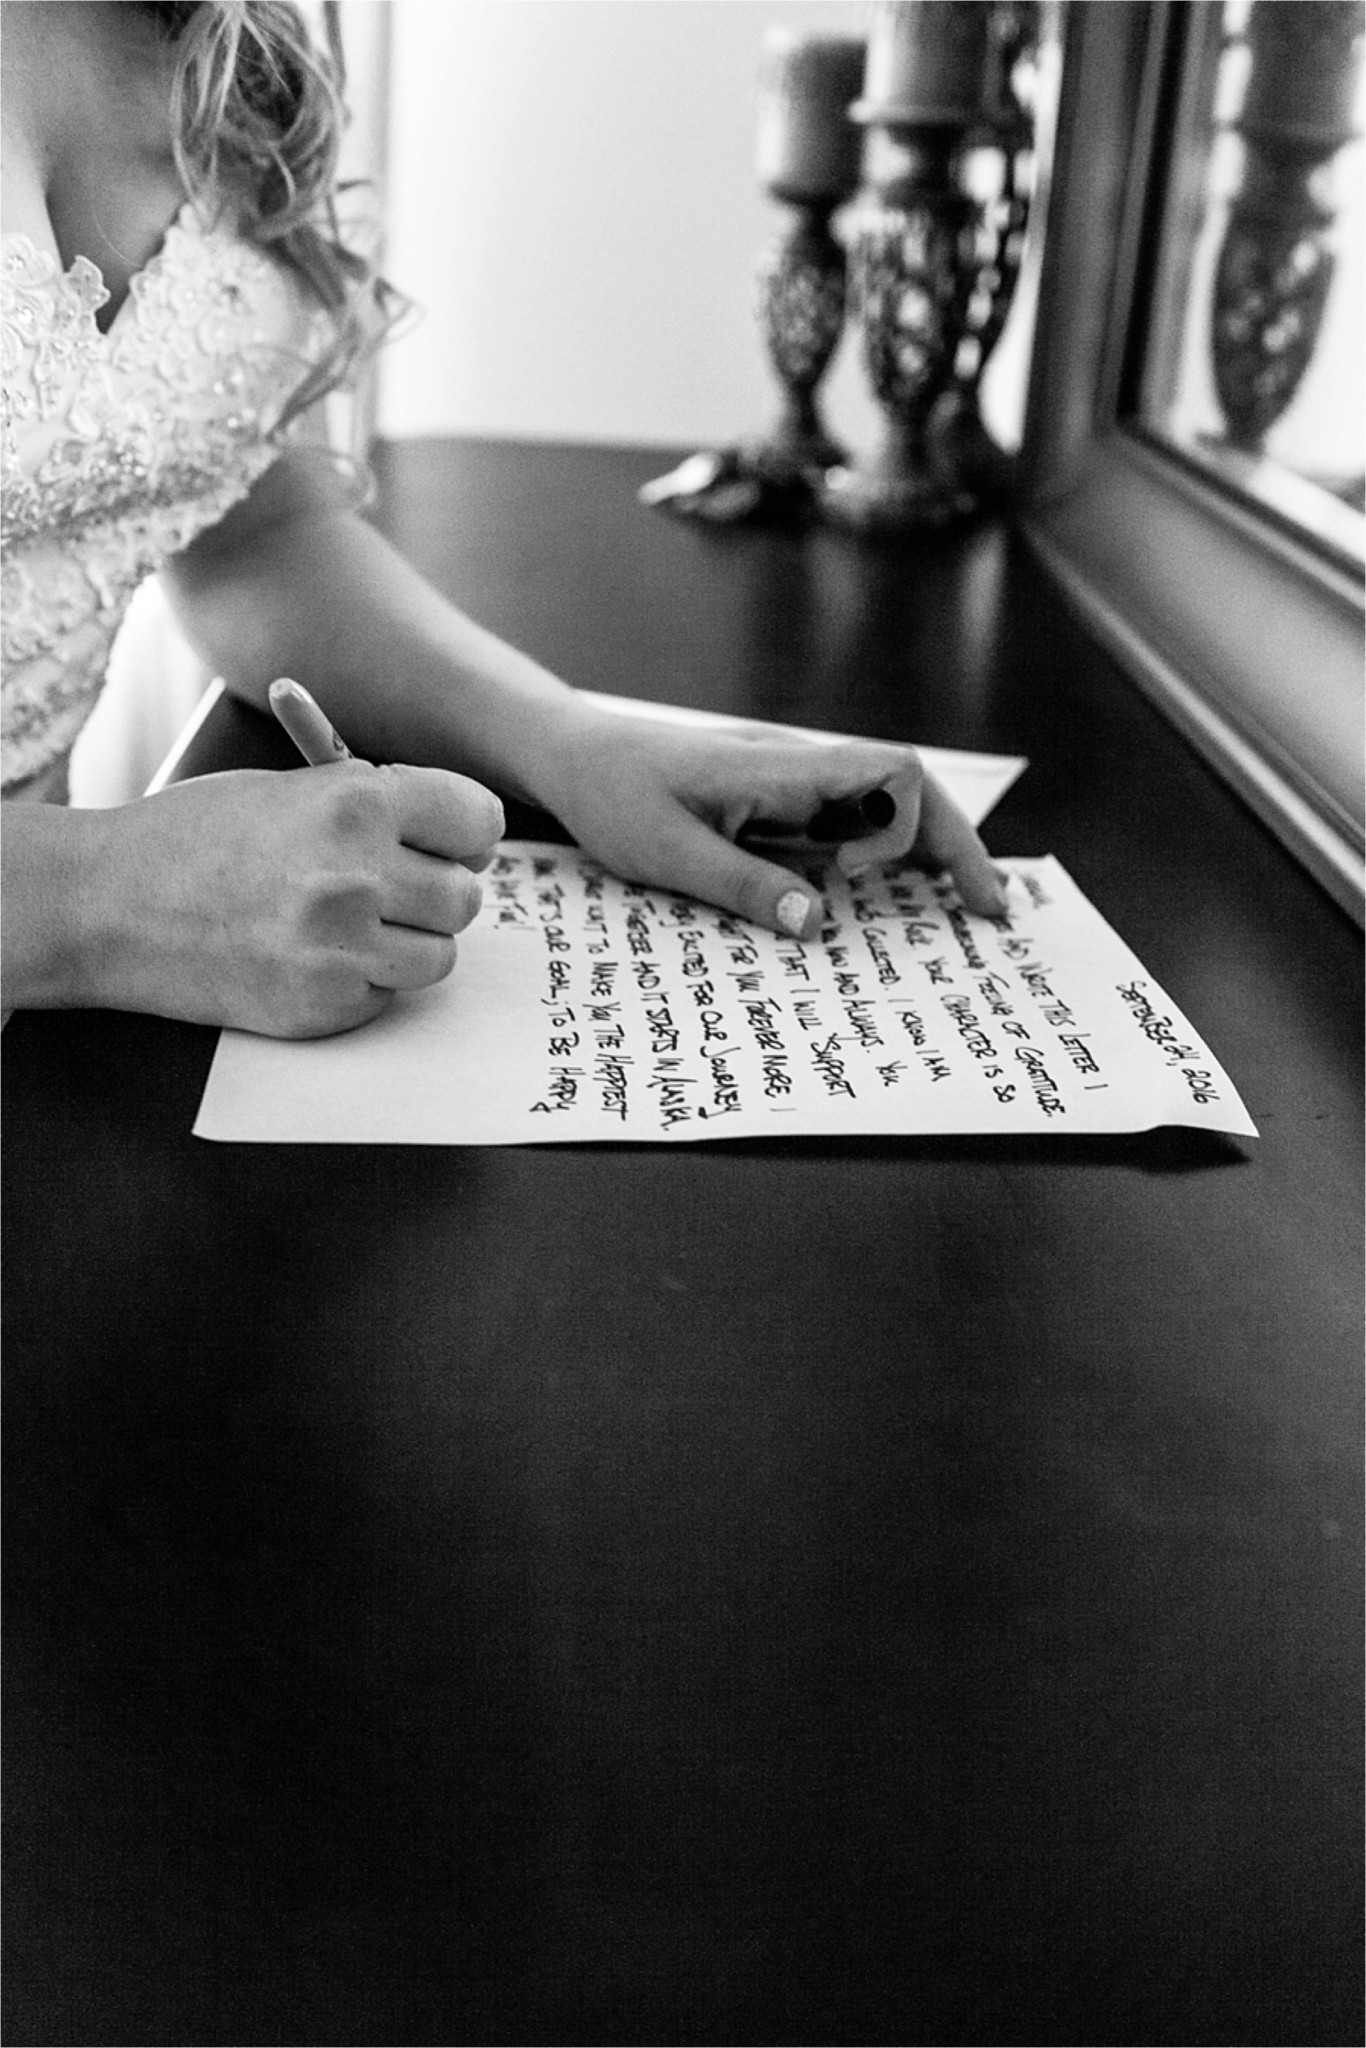 September 24, 2016
and write this letter I
feeling of gratitude.
your character is so
collected. I know I am
now and always. You
that I will support
for you forever more. I
excited for our journey
together and it starts in Alaska.
want to make you the happiest
that's our goal; to be happy
and have fun!